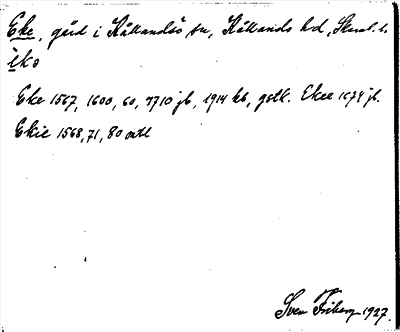 Eke, gård i Kållandsö sn, Kållands hd, Skarab. l.
èkɔ
Eke 1567, 1600, 60, 1710 jb, 1914 kb, gstk. Ekee 1674 jb.
Ekie 1568, 71, 80 ortl
Sven Friberg 1927.